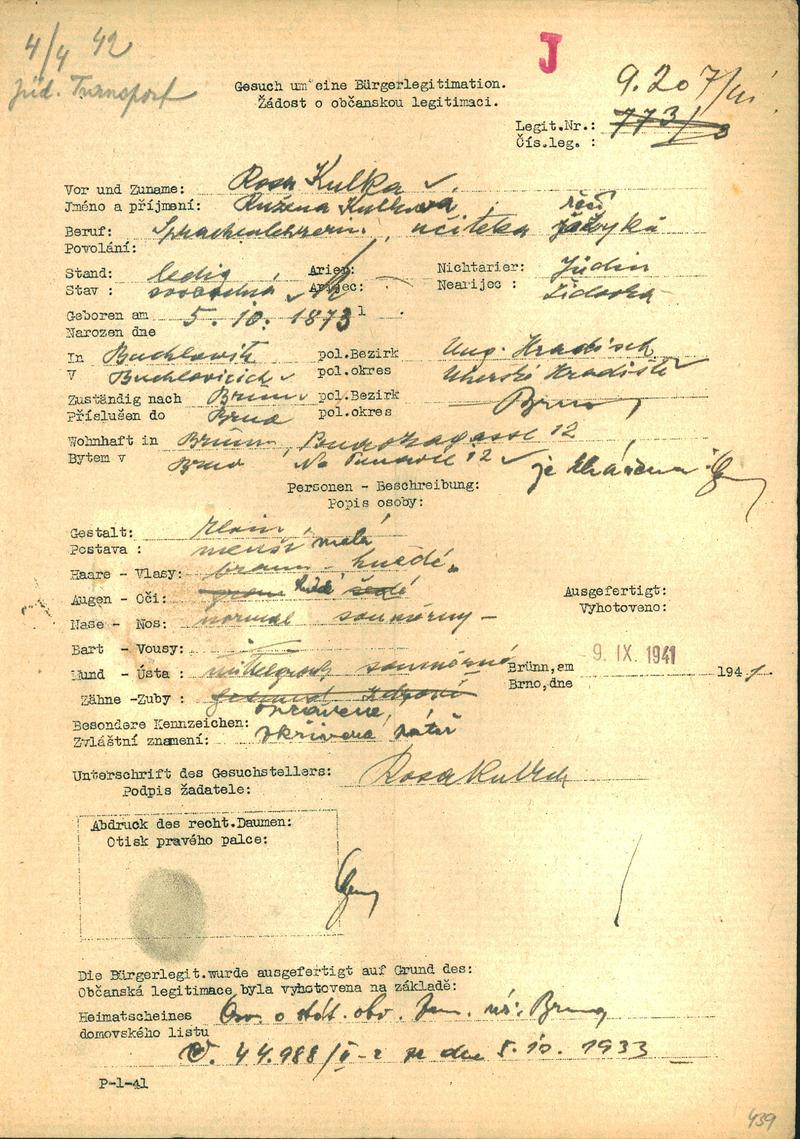 4/4 42
jüd. Transport
J
Gesuch um eine Bürgerlegitimation.
Žádost o občanskou legitimaci.
9.207/
Legit.Nr.: 773/
Čís.leg. :
Vor und Zuname: Rosa Kulka
Jméno a příjmení: Růžena Kulková
Beruf: Sprachenlehrerin, učitelka řečí jazyků
Povolání:
Stand: ledig Arier: Nichtarier: Jüdin
Stav : svobodná Arijec: Nearijec : židovka
Geboren am 5. 10. 1873
Narozen dne
In Buchlowitz pol.Bezirk Ung. Hradisch
V Buchlovicích pol.okres Uherské Hradiště
Zuständig nach Brünn pol.Bezirk Brno
Příslušen do Brna pol.okres
Wohnhaft in Brünn, 12
Bytem v Brno Na Ponávce 12 je
Personen - Beschreibung:
Popis osoby:
Gestalt: klein
Postava : menší malá
Haare - Vlasy: braun - hnědé
Augen - Oči: grau šedé
Ausgefertigt:
Vyhotoveno:
Nase - Nos: normal souměrný
Bart - Vousy:
Mund - Ústa : mittelgross souměrná
Brünn,am 9. IX. 1941 1941
Brno,dne
Zähne -Zuby : gesund zdravé
opravené
Besondere Kennzeichen:
Zvláštní znamení: skřivená páteř
Unterschrift des Gesuchstellers: Rosa Kulka
Podpis žadatele:
Abdruck des recht.Daumen:
Otisk pravého palce:
Die Bürgerlegit.wurde ausgefertigt auf Grund des:
Občanská legitimace byla vyhotovena na základě:
Heimatscheines Osv. o stát. obč. Brno
domovského listu
44.988/II-2 ze dne 5.10. 1933
P-1-41
439